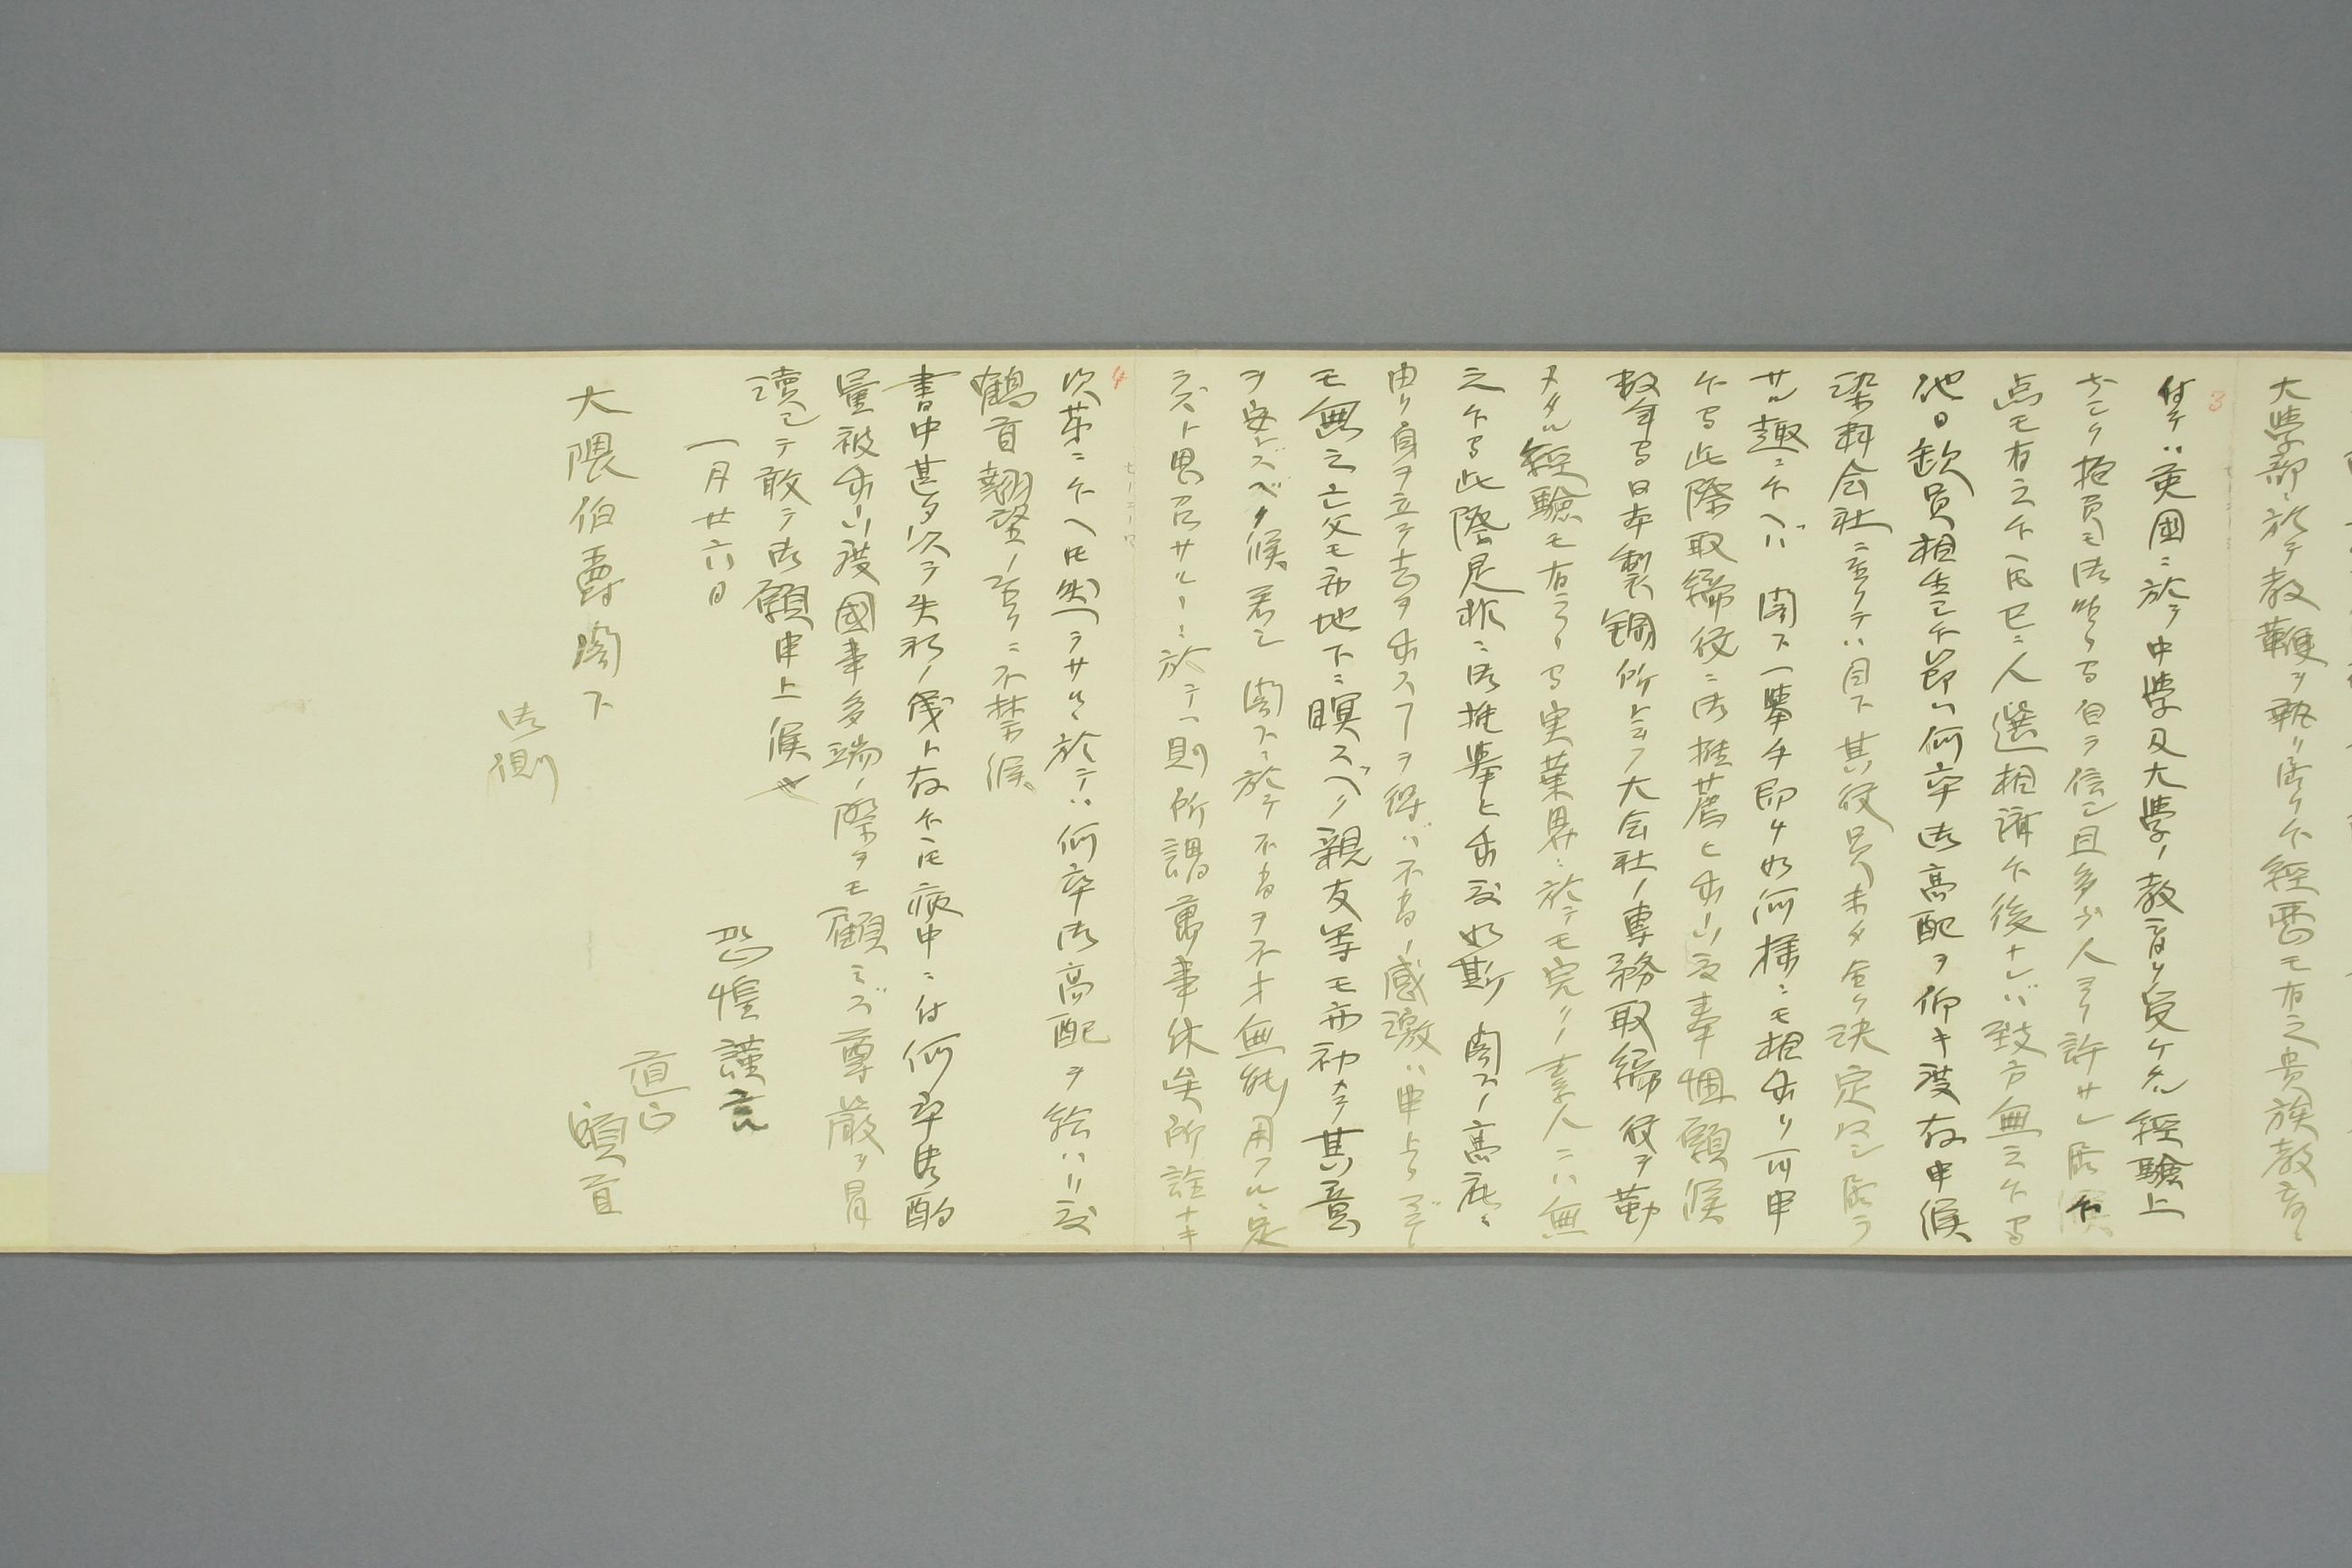 大學部ニ於テ教鞭ヲ執リ居リ候經歷モ有之貴族教育ニ
3
付テハ英國ニ於テ中學及大學ノ教育ヲ受ケタル經驗上
少シク抱負モ御座候間自ラ信シ且多少人ヨリ許サレ居候
点モ有之候ヘ共已ニ人選相濟候後ナレバ致方無之候間
他日缺員相生シ候節ハ何卒御高配ヲ仰キ度存申候
染料会社ニ至リテハ目下其役員未タ全ク決定セシ居ラ
サル趣ニ候ヘバ 閣下一擧手即チ如何様ニモ相成リ可申
候間此際取締役ニ御推薦被成下度奉悃願候
数年間日本製鋼所ト云フ大会社ノ專務取締役ヲ勤
メタル經驗モ有之候間実業界ニ於テモ完ク素人ニハ無
之候間此際是非ニ御推擧被成下度如斯 閣下ノ高庇ニ
由リ身ヲ立テ志ヲ成ス丁ヲ得バ不肖ノ感激ハ申上ルマデ
モ無之亡父モ亦地下ニ瞑スベク親友等モ亦初メテ其意
ヲ安ンズベク候若シ 閣下ニ於テ不肖ヲ不才無能用フルニ足
ラズト思召サルヽニ於テハ則所謂萬事休矣所詮ナキ
4
次第ニ候ヘ共然ラサルニ於テハ何卒御高配ヲ給ハリ度
鶴首翹望ノ至リニ不禁候
書中甚タ以テ失礼ノ儀ト存候ヘ共病中ニ付何卒御酌
量被成下度國事多端ノ際ヲモ顧ミズ尊嚴ヲ冒
瀆シテ敢テ御願申上候也
恐惶謹言
一月廿六日
直正
頓首
大隈伯爵閣下
御側